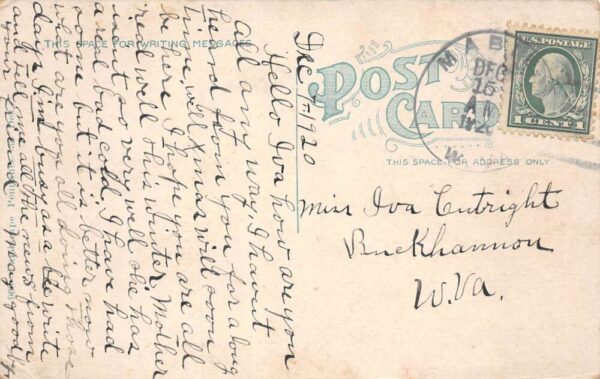 THIS SPACE FOR WRITING MESSAGES
POST CARD
THIS SPACE FOR ADDRESS ONLY
MAB
DEC
16
AM
U.S. POSTAGE
1 CENT 1
Miss Iva Cutright
Buckhannon
W.Va.
Dec 1920
Hello Iva how are you
all any way, I havent
heard from you for a long
time well Xmas will soon
be here I hope you are all
real well this winter, Mother
isent so very well she has
a real bad cold, I have had
one but it is better now
what are you all doing those
days I'm busy as a bee write
and tell me all the news from
your
good by